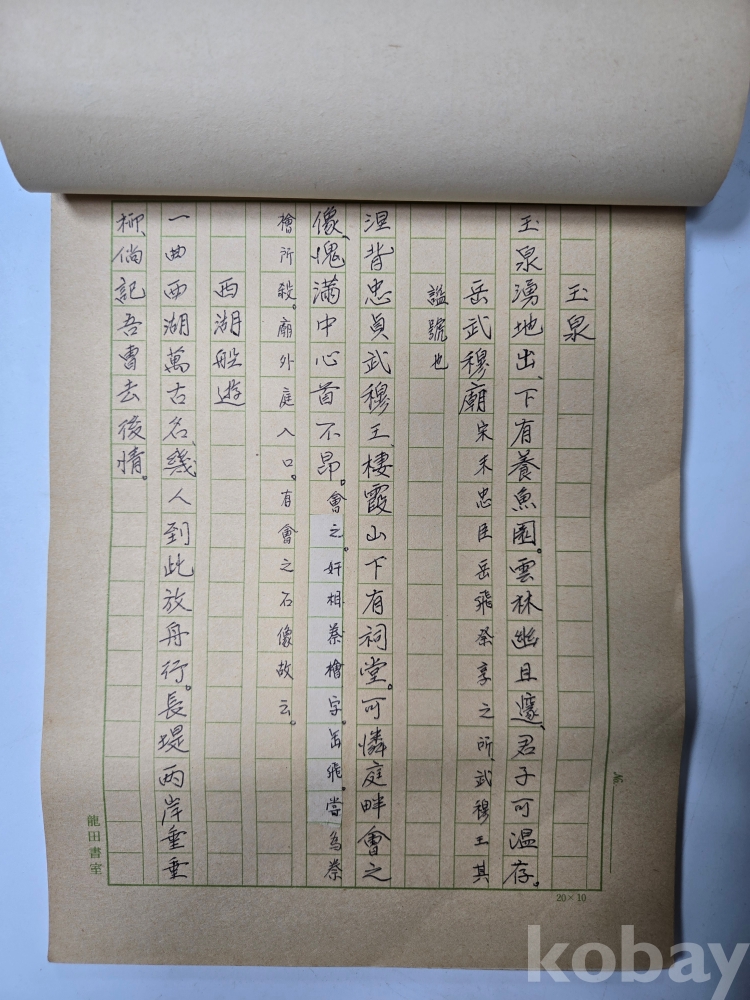 玉泉
玉泉湧地出、下有養魚園。雲林幽且邃、君子可温存。
岳武穆廟 宋末忠臣岳飛祭享之所、武穆王其
諡號也
涅背忠貞武穆王、棲霞山下有祠堂。可憐庭畔會之
像、愧滿中心首不昂。會之。奸相秦檜字。岳飛。嘗為秦
檜所殺。廟外庭入口。有會之石像故云。
西湖船遊
一曲西湖萬古名、幾人到此放舟行。長堤兩岸垂垂
柳、倘記吾曹去後情。
龍田書室
20×10
kobay